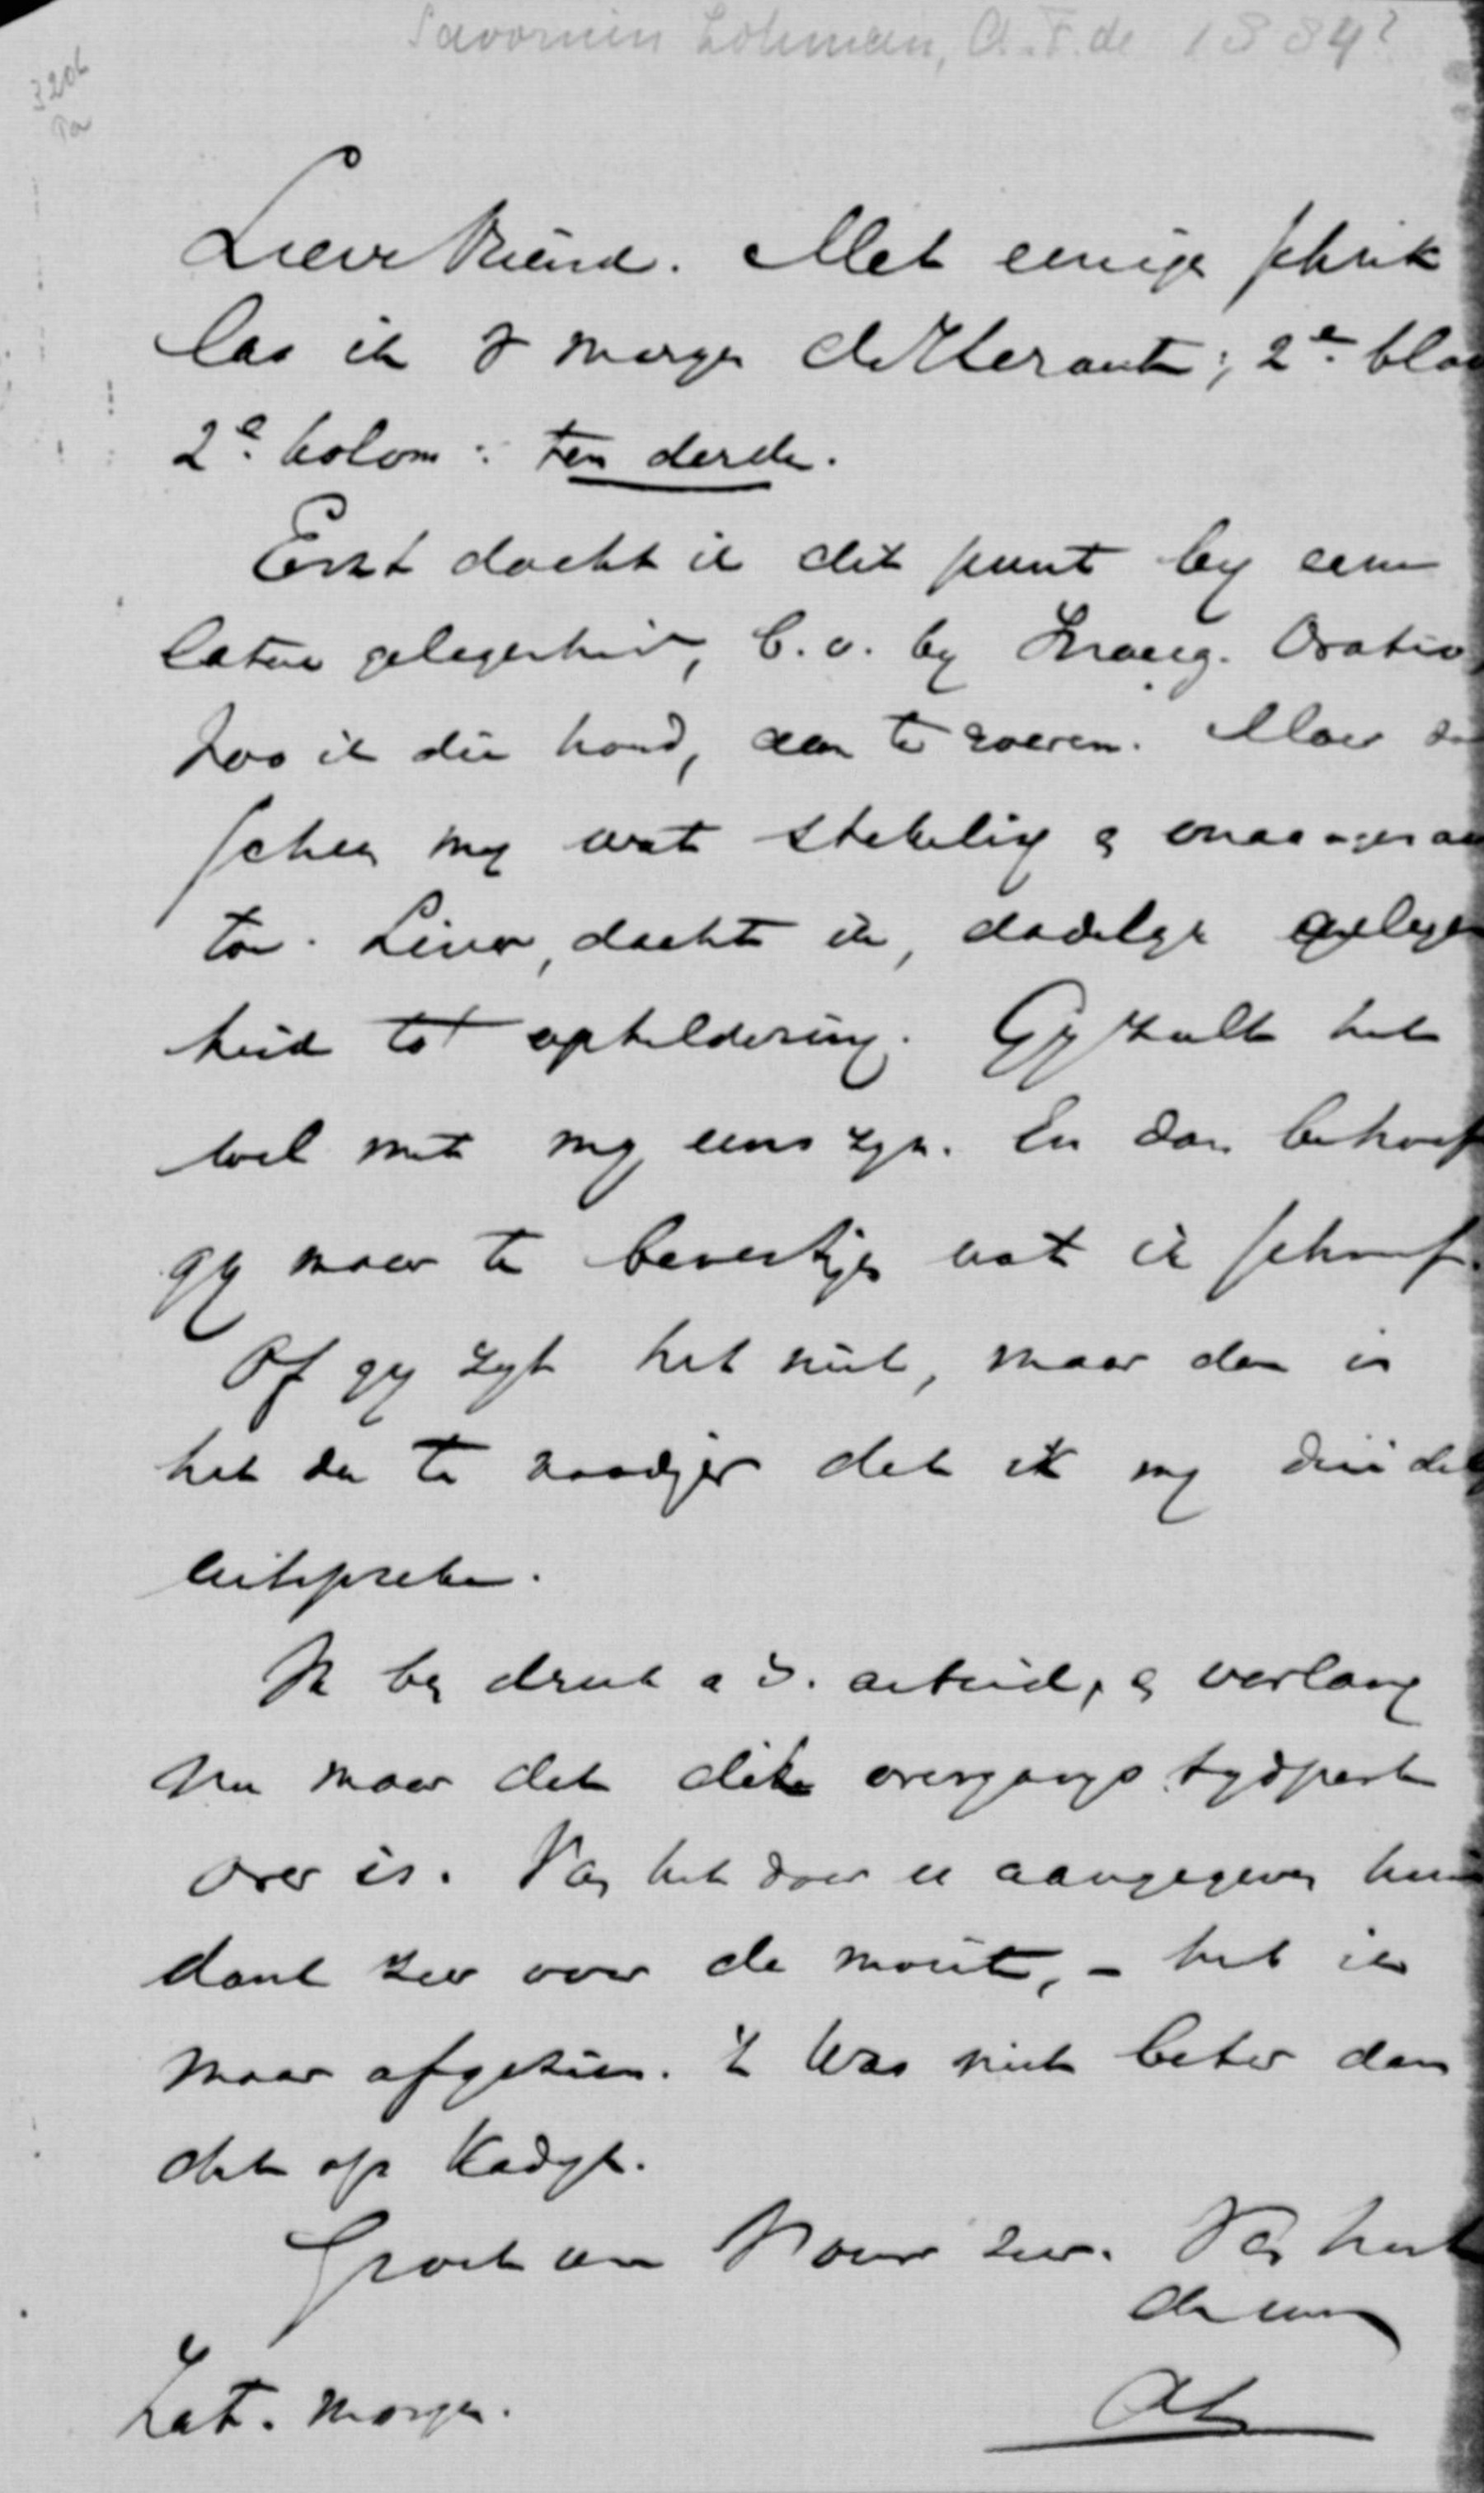 Savornin Lohman, A.F. de 1884?
3206
Lieve Vriend. Met eenige schrik
las ik v morgen de Heraut; 2e. blad
2e. kolom: ten derde.
Eerst dacht ik dit punt by eene
latere gelegenheid, b.v. by Inaug. Oratie
zoo ik die houd, aan te roeren. Maar dat
scheen my wat stekelig & onaangenaam
toe. Liever, dacht ik, dadelyk gelegen
heid tot opheldering. Gy zult het
wel met my eens zyn. En dan behoeft
gy maar te bevestigen wat ik schreef.
Of gy zyt het niet, maar dan is
het des te noodiger dat ik my duidelyk
uitspreke.
Ik ben druk a d. arbeid, & verlang
nu maar dat dit overgangs tydperk
over is. Van het door u aangegeven huis
dank zeer voor de moeite, - het is
maar afgezien. 't Was niet beter dan
dat op Kadyk.
Groet uw Vrouw zeer. Van harte
de uwe
AL
Zat. morgen.